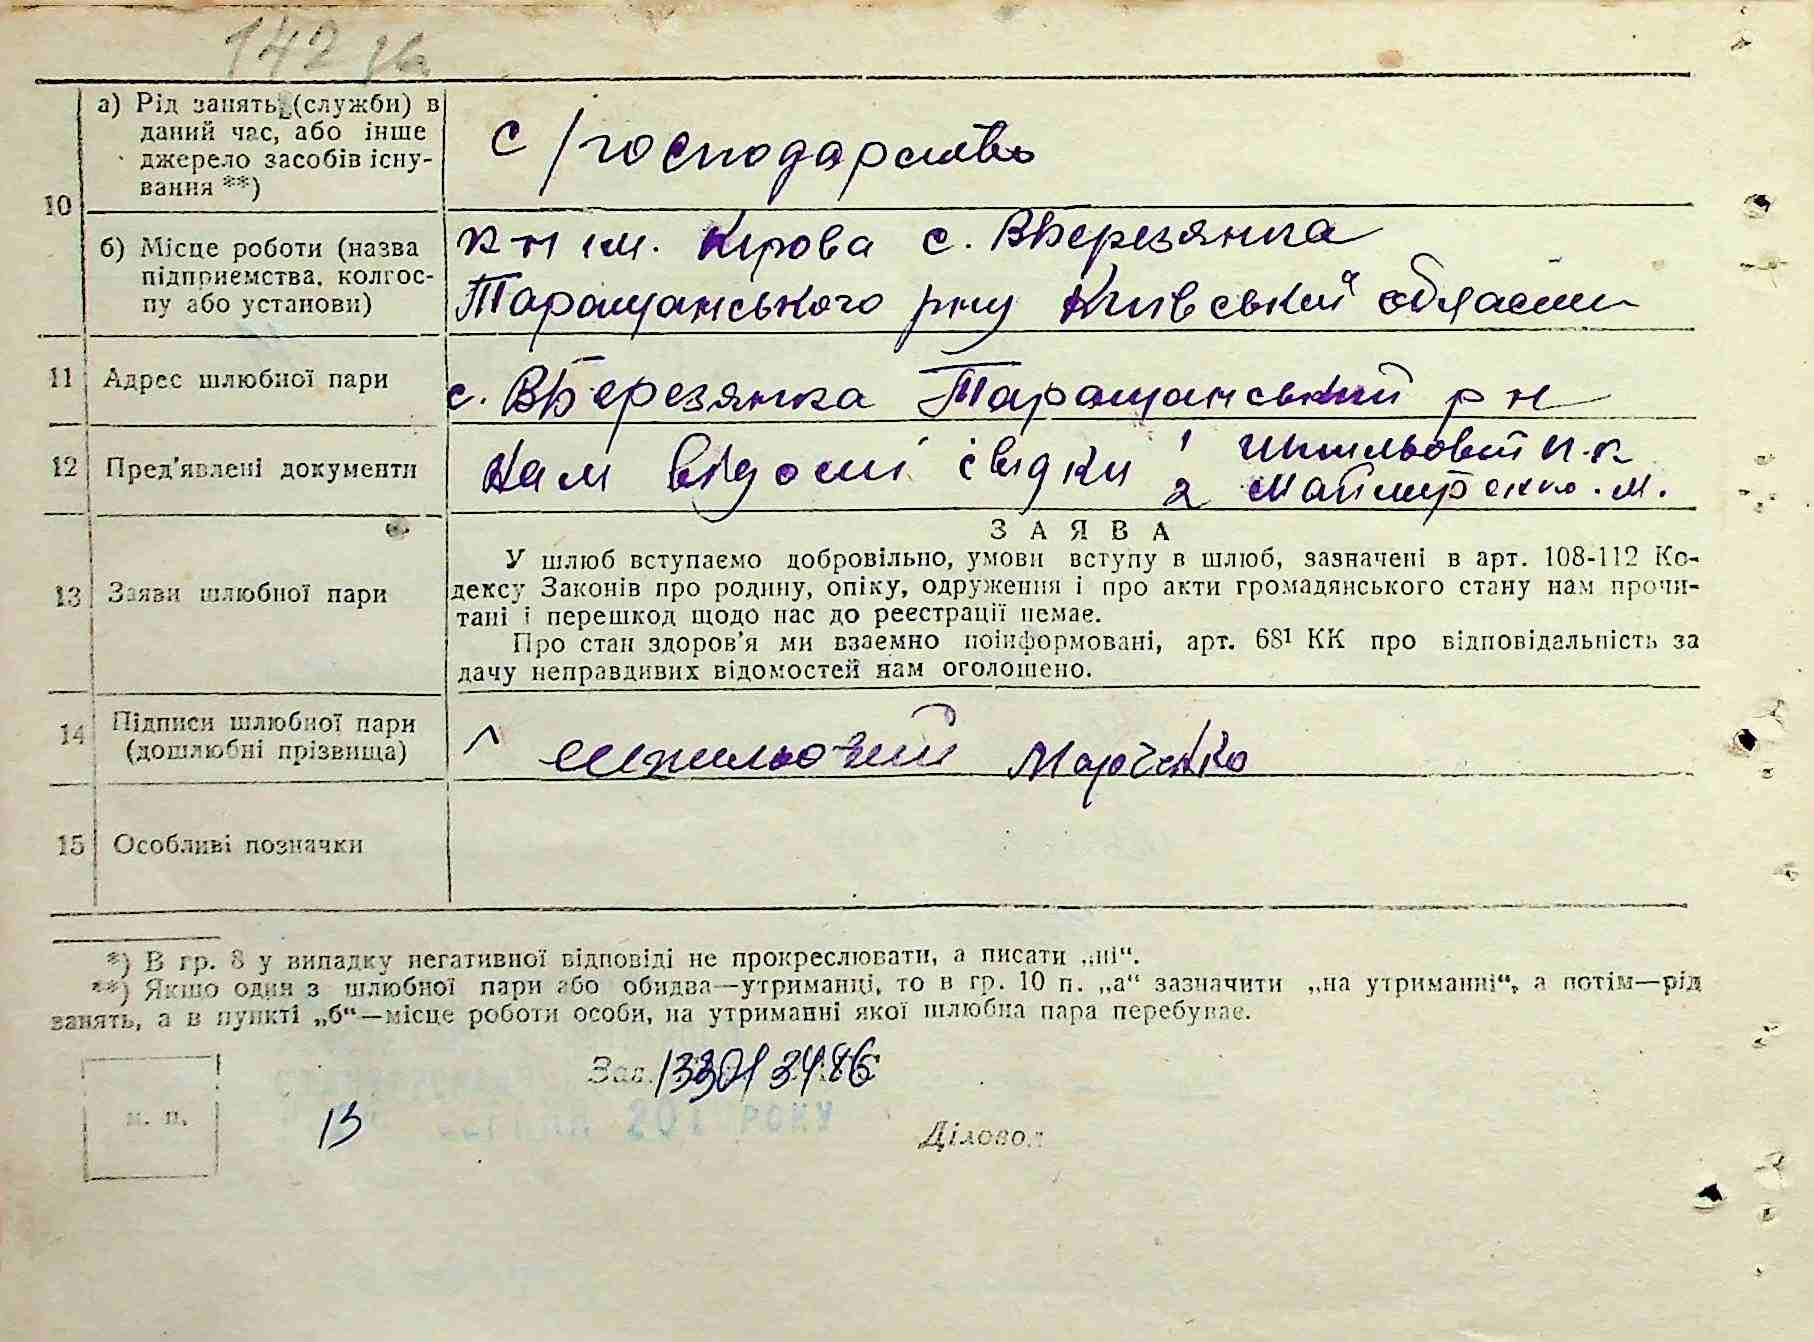 142 зв.
10
а) Рід занять (служби) в
даний час, або інше
джерело засобів існу-
вання **)
с/господарство
б) Місце роботи (назва
підприємства, колгос-
пу або установи)
к-п ім. Кірова с. ВБерезянка
Таращанського рну Київської області
11 Адрес шлюбної пари
с. ВБерезянка Таращанський р н
12 Пред'явлені документи
Нам відомі свідки 1 Шпильовий
2
13 Заяви шлюбної пари
ЗАЯВА
У шлюб вступаємо добровільно, умови вступу в шлюб, зазначені в арт. 108-112 Ко-
дексу Законів про родину, опіку, одруження і про акти громадянського стану нам прочи-
тані і перешкод щодо нас до реєстрації немає.
Про стан здоров'я ми взаємно поінформовані, арт. 68¹ КК про відповідальність за
дачу неправдивих відомостей нам оголошено.
14 Підписи шлюбної пари
(дошлюбні прізвища)
Шпильовий Марченко
15 Особливі позначки
*) В гр. 8 у випадку негативної відповіді не прокреслювати, а писати „ні“.
**) Якшо один з шлюбної пари або обидва—утриманці, то в гр. 10 п. „а“ зазначити „на утриманні“, а потім—рід
занять, а в пункті „б“—місце роботи особи, на утриманні якої шлюбна пара перебуває.
м. п.
Зав. 1330/3486
13
СЕРПНЯ 201 РОКУ
Діловод